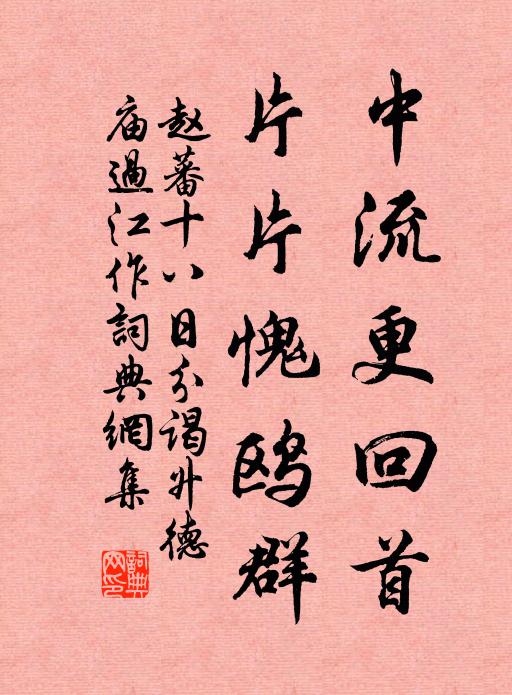 中流更回首
片片愧鸥群
赵蕃十八日分谒升德
庙過江作詞典網集
詞典网印